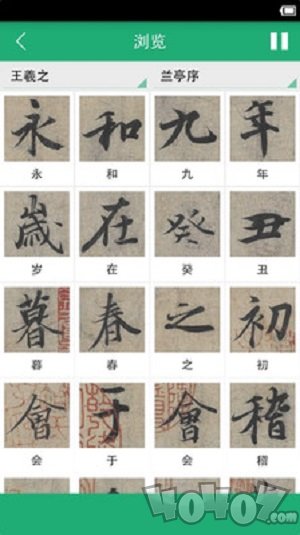 浏览
王羲之 兰亭序
永 和 九 年
永 和 九 年
歲 在 癸 丑
岁 在 癸 丑
暮 春 之 初
暮 春 之 初
會 于 會 稽
会 于 会 稽
40407.com